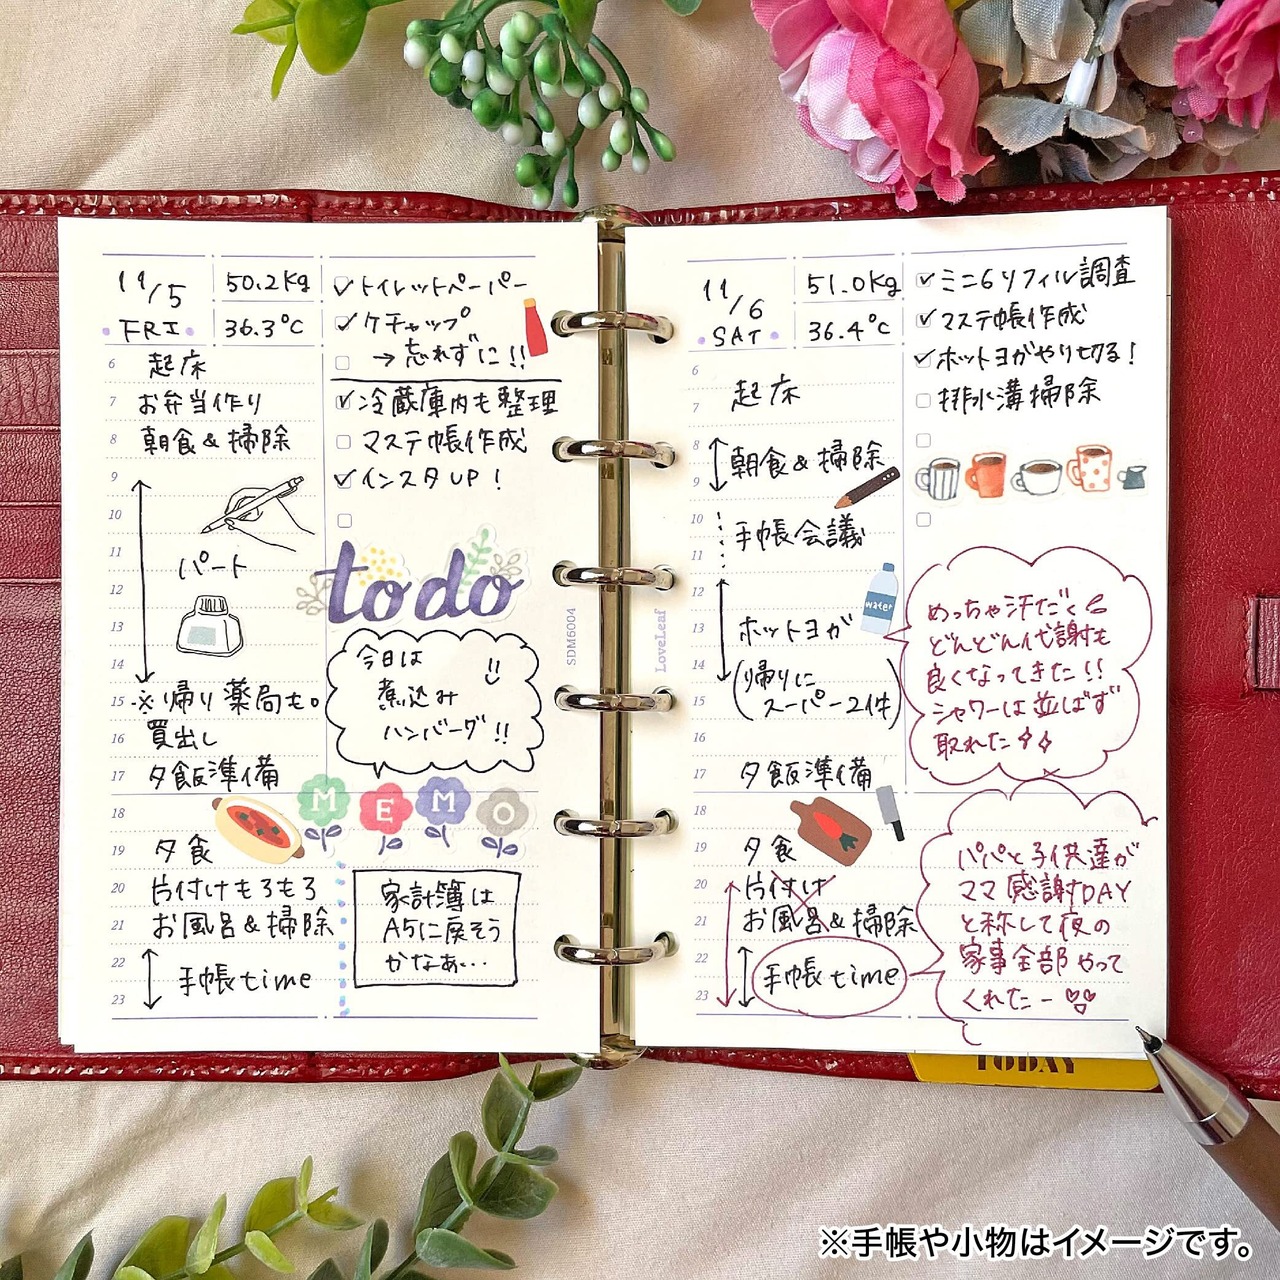 11/5
FRI
50.2kg
36.3℃
6 起床
7 お弁当作り
8 朝食&掃除
9
10
11 パート
12
13
14
15 ※帰り薬局も。
16 買出し
17 夕飯準備
18
19 夕食
20 片付けもろもろ
21 お風呂&掃除
22 手帳time
23
トイレットペーパー
ケチャップ
→忘れずに!!
冷蔵庫内も整理
マステ帳作成
インスタUP!
to do
今日は
煮込み
ハンバーグ!!
MEMO
家計簿は
A5に戻そう
かなぁ…
SDM6004
LoveLeaf
11/6
SAT
51.0kg
36.4℃
6
7 起床
8 朝食&掃除
9
10 手帳会議
11
12
13 ホットヨガ
14 (帰りに
15 スーパー2件)
16
17 夕飯準備
18
19 夕食
20 片付け
21 お風呂&掃除
22 手帳time
23
ミニ6リフィル調査
マステ帳作成
ホットヨガやり切る!
排水溝掃除
water
めっちゃ汗だく
どんどん代謝も
良くなってきた!!
シャワーは並ばず
取れた
パパと子供達が
ママ感謝DAY
と称して夜の
家事全部やって
くれたー
TODAY
※手帳や小物はイメージです。